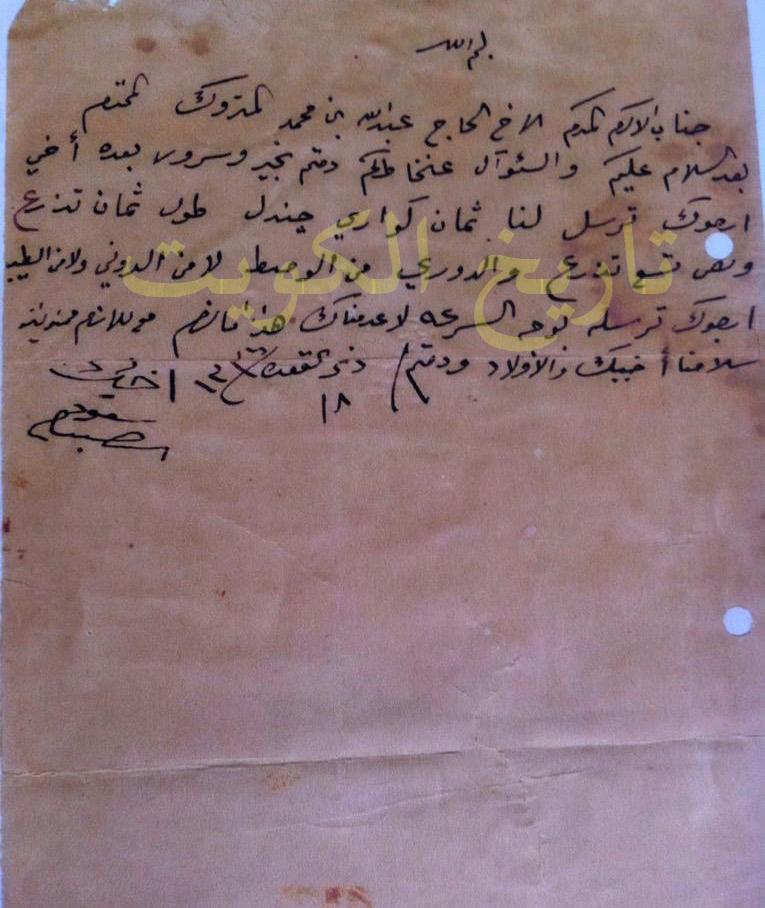 بسم الله
جناب الاكرم المكرم الاخ الحاج عبدالله بن محمد المتروك المحترم
بعد السلام عليكم والسئوآل عن خاطركم دمتم بخير وسرور بعده أخي
ارجوك ترسل لنا ثمان كواري چندل طول ثمان تذرع
ونص تسع تذرع والدوري من الوسط لا من الدوني ولا من الطيب
ارجوك ترسله بوجه السرعه لاعدمناك هذا مالزم
سلامنا أخيك والاولاد ودمتم
ذي القعده
١٨
تاريخ الكويت